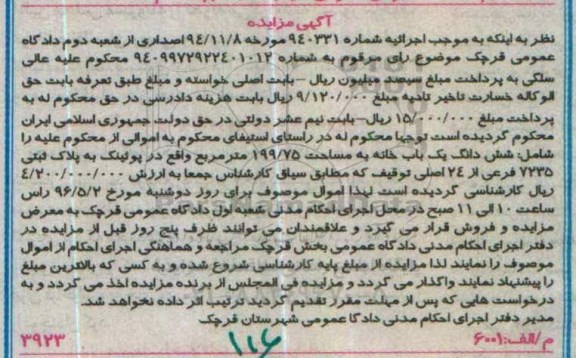 آگهی مزایده
نظر به اینکه به موجب اجرائیه شماره ۹۴۰۳۳۱ مورخه ۹۴/۱۱/۸ اصداری از شعبه دوم دادگاه
عمومی قرچک موضوع رای مرقوم به شماره ۹۴۰۹۹۷۲۹۲۲۴۰۱۰۱۲ محکوم علیه عالی
سلکی به پرداخت مبلغ سیصد میلیون ریال –بابت اصلی خواسته و مبلغ طبق تعرفه بابت حق
الوکاله خسارت تاخیر تادیه مبلغ ۹/۱۲۰/۰۰۰ ریال بابت هزینه دادرسی در حق محکوم له به
پرداخت مبلغ ۱۵/۰۰۰/۰۰۰ ریال–بابت نیم عشر دولتی در حق دولت جمهوری اسلامی ایران
محکوم گردیده است توجها محکوم له در راستای استیفای محکوم به اموالی از محکوم علیه را
شامل: شش دانگ یک باب خانه به مساحت ۱۹۹/۷۵ مترمربع واقع در پوئینک به پلاک ثبتی
۷۲۳۵ فرعی از ۲۴ اصلی توقیف که مطابق سیاق کارشناس جمعا به ارزش ۴/۲۰۰/۰۰۰/۰۰۰
ریال کارشناسی گردیده است لهذا اموال موصوف برای روز دوشنبه مورخ ۹۶/۵/۲ راس
ساعت ۱۰ الی ۱۱ صبح در محل اجرای احکام مدنی شعبه اول دادگاه عمومی قرچک به معرض
مزایده و فروش قرار می گیرد و علاقمندان می توانند ظرف پنج روز قبل از مزایده در
دفتر اجرای احکام مدنی دادگاه عمومی بخش قرچک مراجعه و هماهنگی اجرای احکام از اموال
موصوف را نمایند لذا مزایده از مبلغ پایه کارشناسی شروع شده و به کسی که بالاترین مبلغ
را پیشنهاد نمایند واگذار می گردد و مزایده فی المجلس از برنده مزایده اخذ می گردد و به
درخواست هایی که پس از مهلت مقرر تقدیم گردید ترتیب اثر داده نخواهد شد.
مدیر دفتر اجرای احکام مدنی دادگا عمومی شهرستان قرچک
م/الف:۶۰۰۱ ۱۱۶ ۳۹۲۳